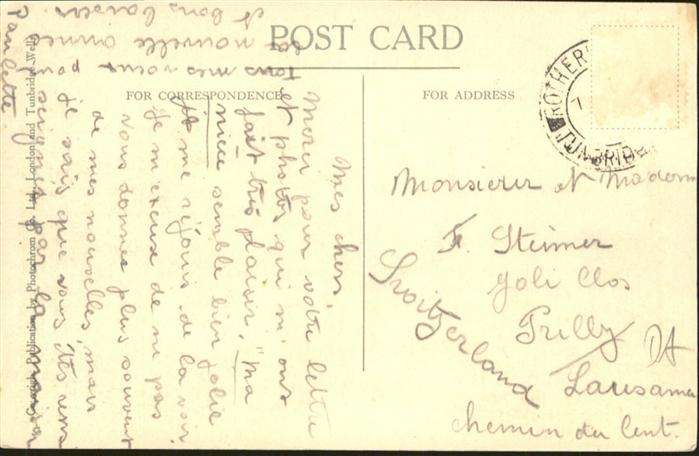 POST CARD
FOR CORRESPONDENCE
FOR ADDRESS
Mes chers,
Merci pour votre lettre
et photos qui m'ont
fait très plaisir, "ma
nièce semble bien jolie
et me réjouis de la voir.
Je m'excuse de ne pas
vous donner plus souvent
de mes nouvelles, mais
je sais que vous êtes rens
seignés par la
Tous mes vœux pour
la nouvelle année
et bons baisers
Paulette
Monsieur et Madame
F. Steimer
Joli Clos
Prilly
Lausanne
chemin du Cent.
Switzerland
ROTHER
TUNBRID
Publication by Photochrom Co. Ltd., London and Tunbridge Wells